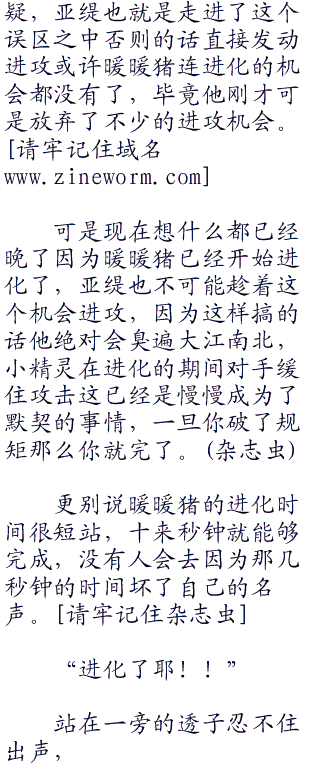 疑，亚缇也就是走进了这个
误区之中否则的话直接发动
进攻或许暖暖猪连进化的机
会都没有了，毕竟他刚才可
是放弃了不少的进攻机会。
[请牢记住域名
www.zineworm.com]
可是现在想什么都已经
晚了因为暖暖猪已经开始进
化了，亚缇也不可能趁着这
个机会进攻，因为这样搞的
话他绝对会臭遍大江南北，
小精灵在进化的期间对手缓
住攻击这已经是慢慢成为了
默契的事情，一旦你破了规
矩那么你就完了。(杂志虫)
更别说暖暖猪的进化时
间很短站，十来秒钟就能够
完成，没有人会去因为那几
秒钟的时间坏了自己的名
声。[请牢记住杂志虫]
“进化了耶！！”
站在一旁的透子忍不住
出声，